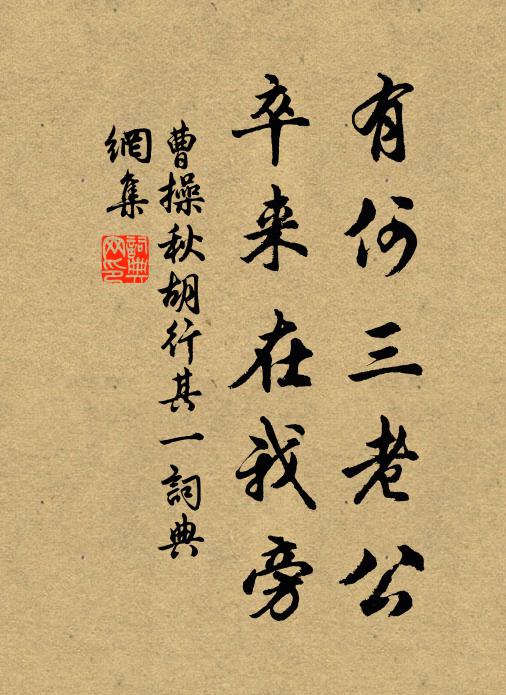 有何三老公
卒来在我旁
曹操秋胡行其一詞典
網集
詞典
网印